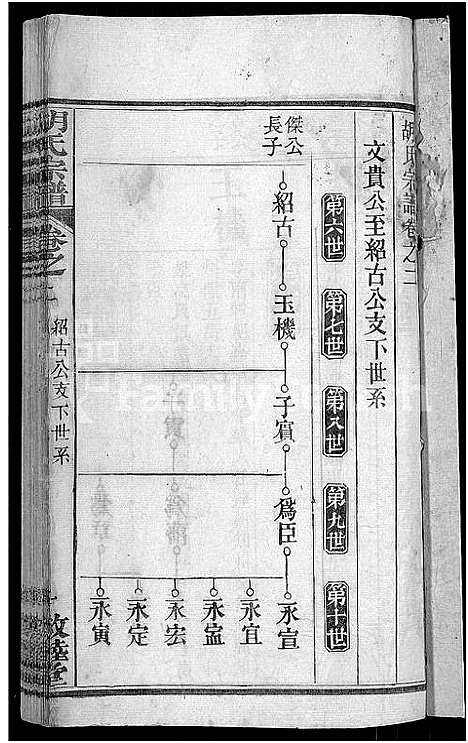 胡氏宗譜卷之二
文貴公至紹古公支下世系
第六世
第七世
第八世
第九世
第十世
傑公
長子
紹古
玉機
子賓
爲臣
永宣
永宜
永宓
永宏
永定
永寅
胡氏宗譜
卷之二
紹古公支下世系
一
敦睦堂